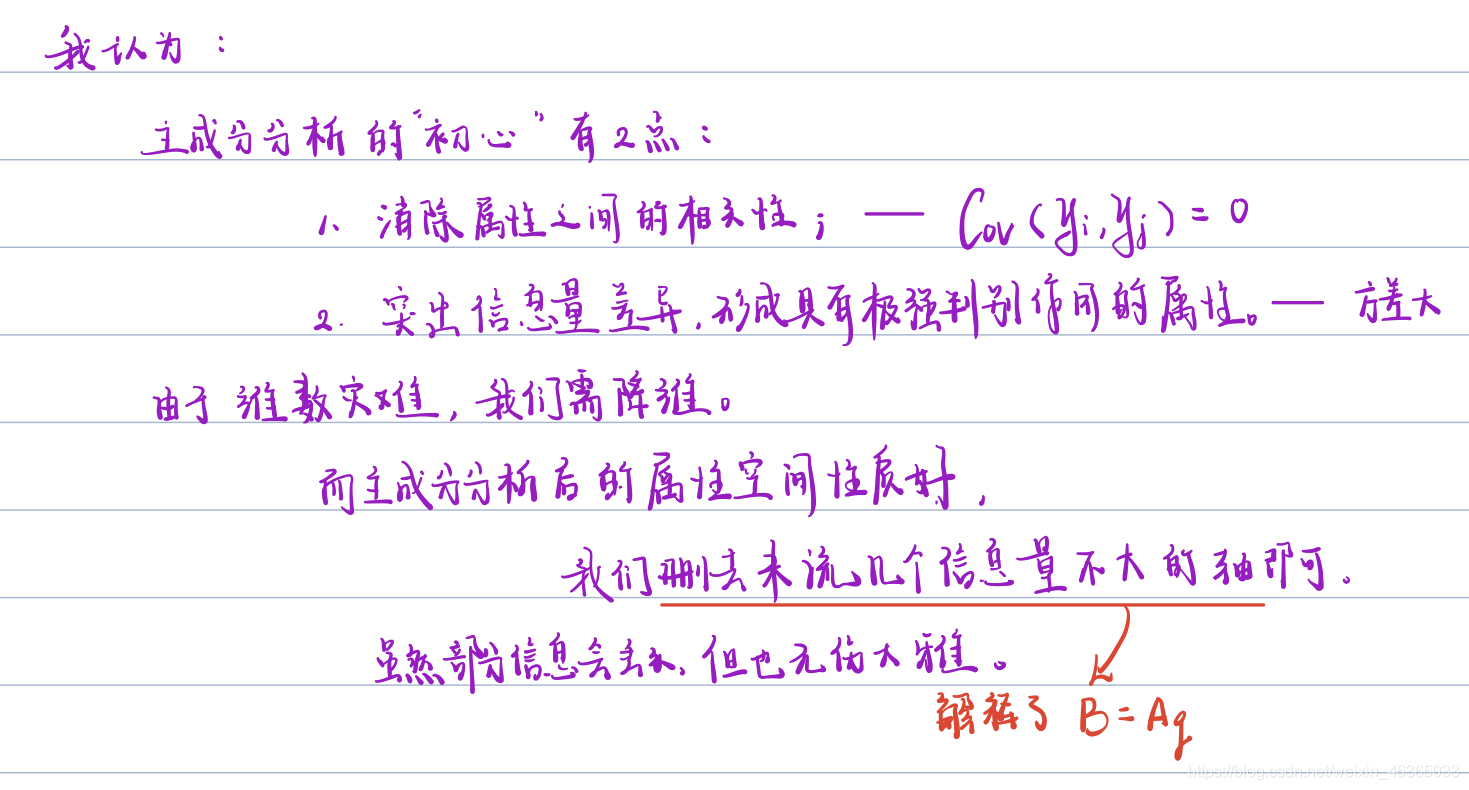 我认为：
主成分分析的“初心”有2点：
1. 消除属性之间的相关性；— Cov(yi,yj)=0
2. 突出信息量差异，形成具有极强判别作用的属性。— 方差大
由于维数灾难，我们需降维。
而主成分分析后的属性空间性质好，
我们删去末流几个信息量不大的轴即可。
虽然部分信息会丢失，但也无伤大雅。
解释了 B=Aq
https://blog.csdn.net/weixin_46365033